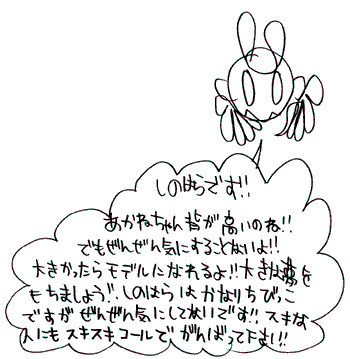 しのはらです!!
あかねちゃん背が高いのね!!
でもぜんぜん気にすることないよ!!
大きかったらモデルになれるよ!!大きな夢を
もちましょう!!しのはらはかなりちびっこ
ですがぜんぜん気にしてないです!!スキな
人にもスキスキコールでがんばって下さい!!